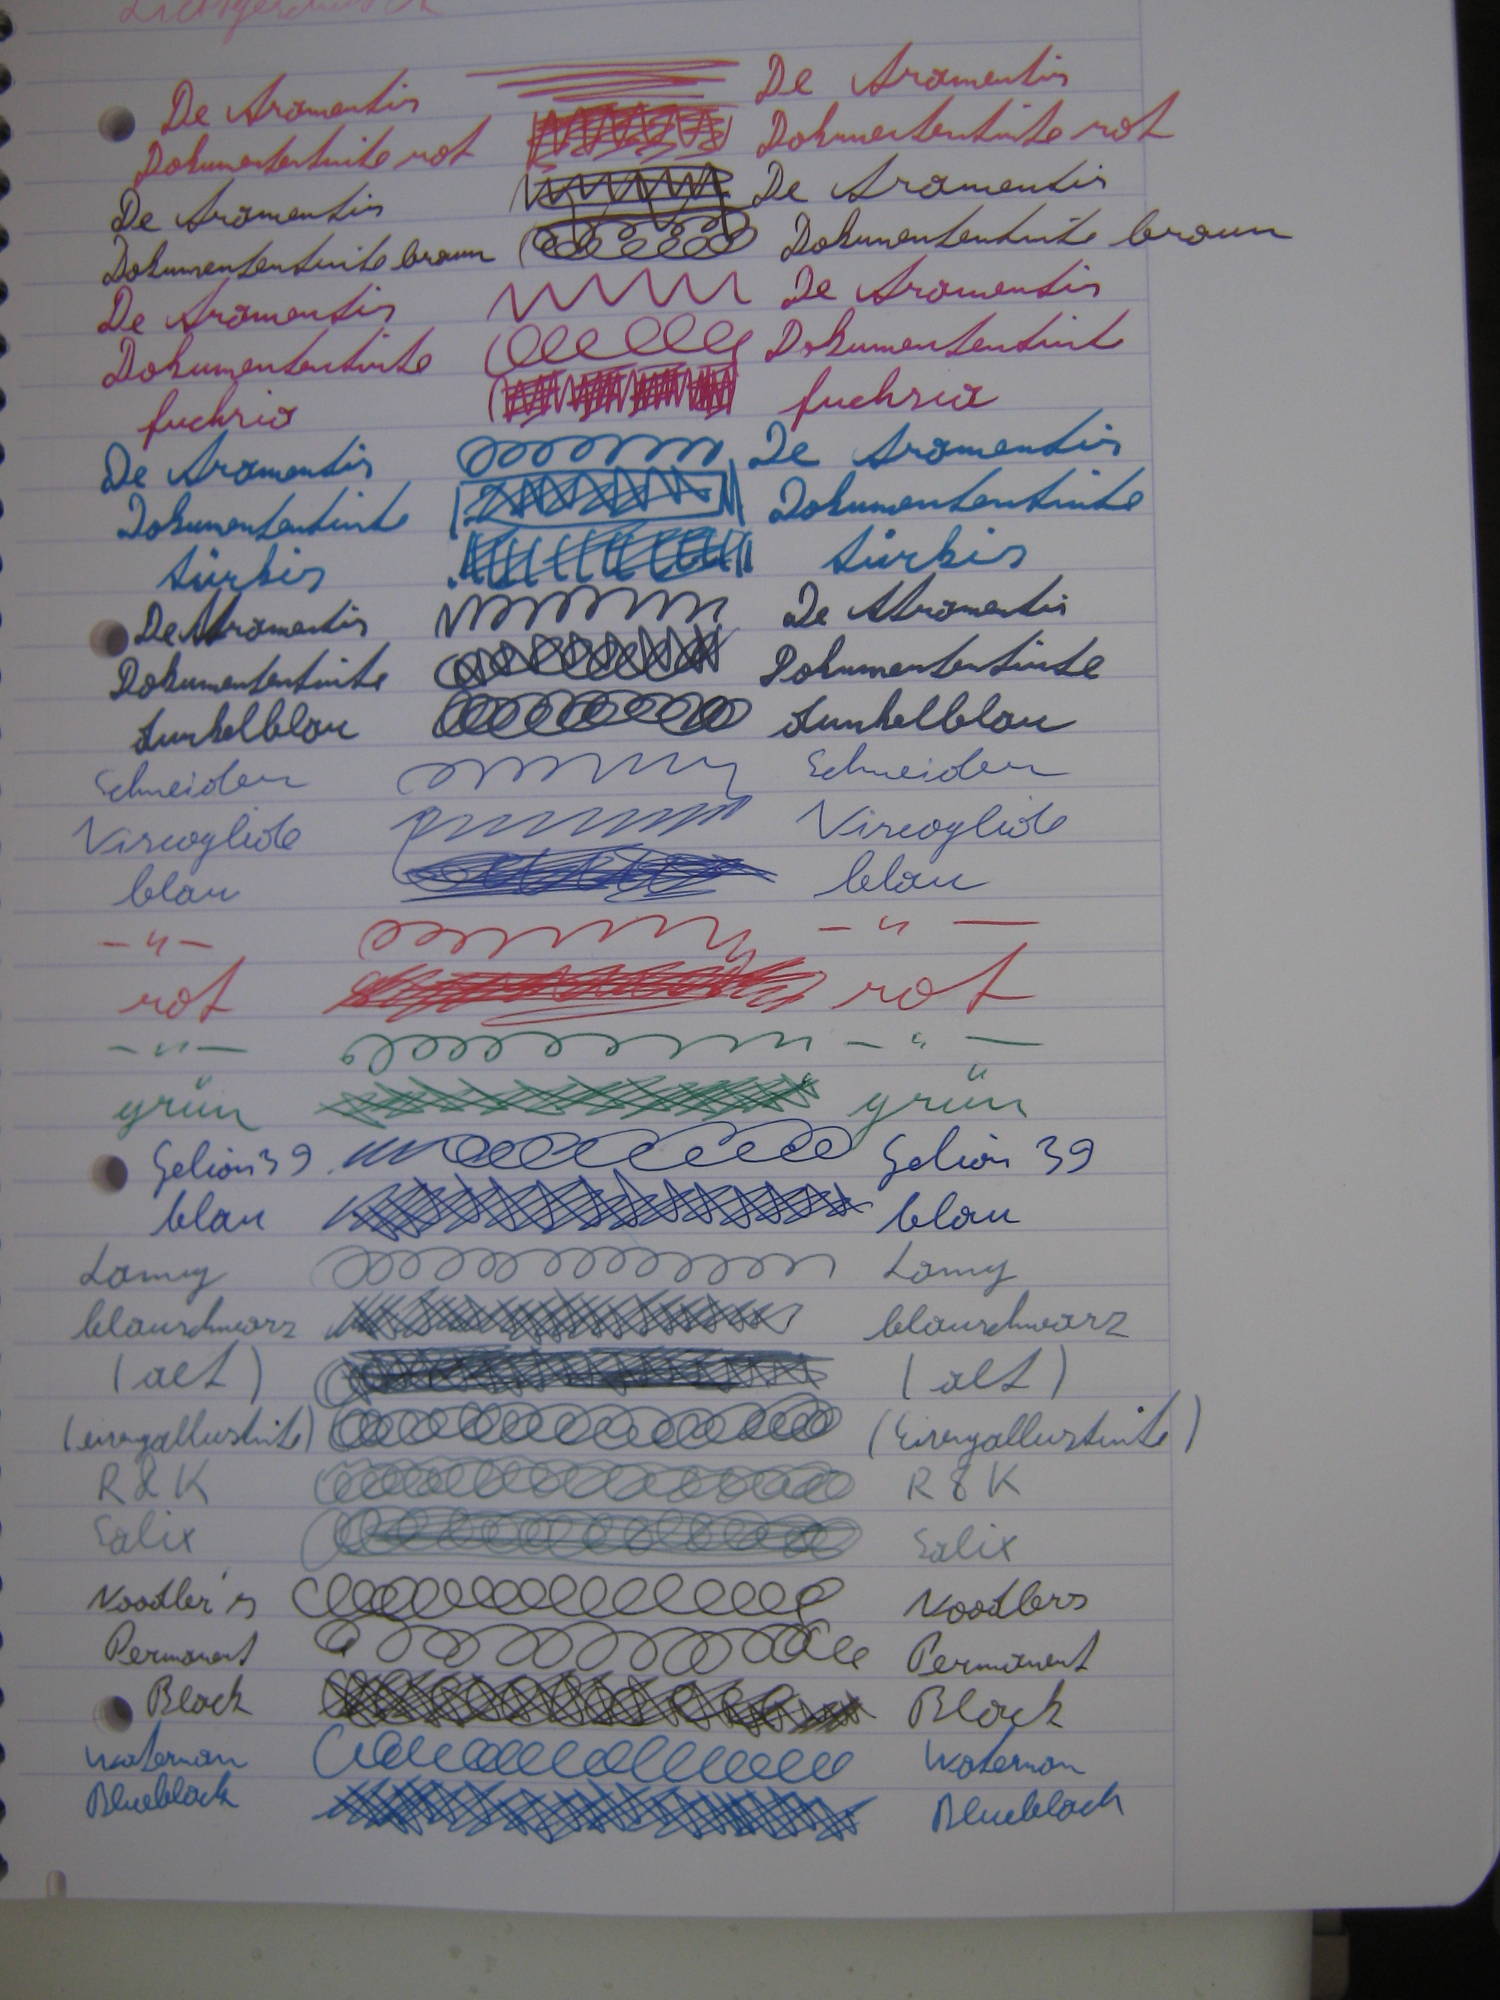 De Atramentis De Atramentis
Dokumententinte rot Dokumententinte rot
De Atramentis De Atramentis
Dokumententinte braun Dokumententinte braun
De Atramentis De Atramentis
Dokumententinte Dokumententinte
fuchsia fuchsia
De Atramentis De Atramentis
Dokumententinte Dokumententinte
türkis türkis
De Atramentis De Atramentis
Dokumententinte Dokumententinte
dunkelblau dunkelblau
Schneider Schneider
Viscoglide Viscoglide
blau blau
— " — — " —
rot rot
— " — — " —
grün grün
Gelion 39 Gelion 39
blau blau
Lamy Lamy
blauschwarz blauschwarz
(alt) (alt)
(eisengallustinte) (Eisengallustinte)
R & K R & K
Salix Salix
Noodler's Noodlers
Permanent Permanent
Black Black
Waterman Waterman
Blueblack Blueblack